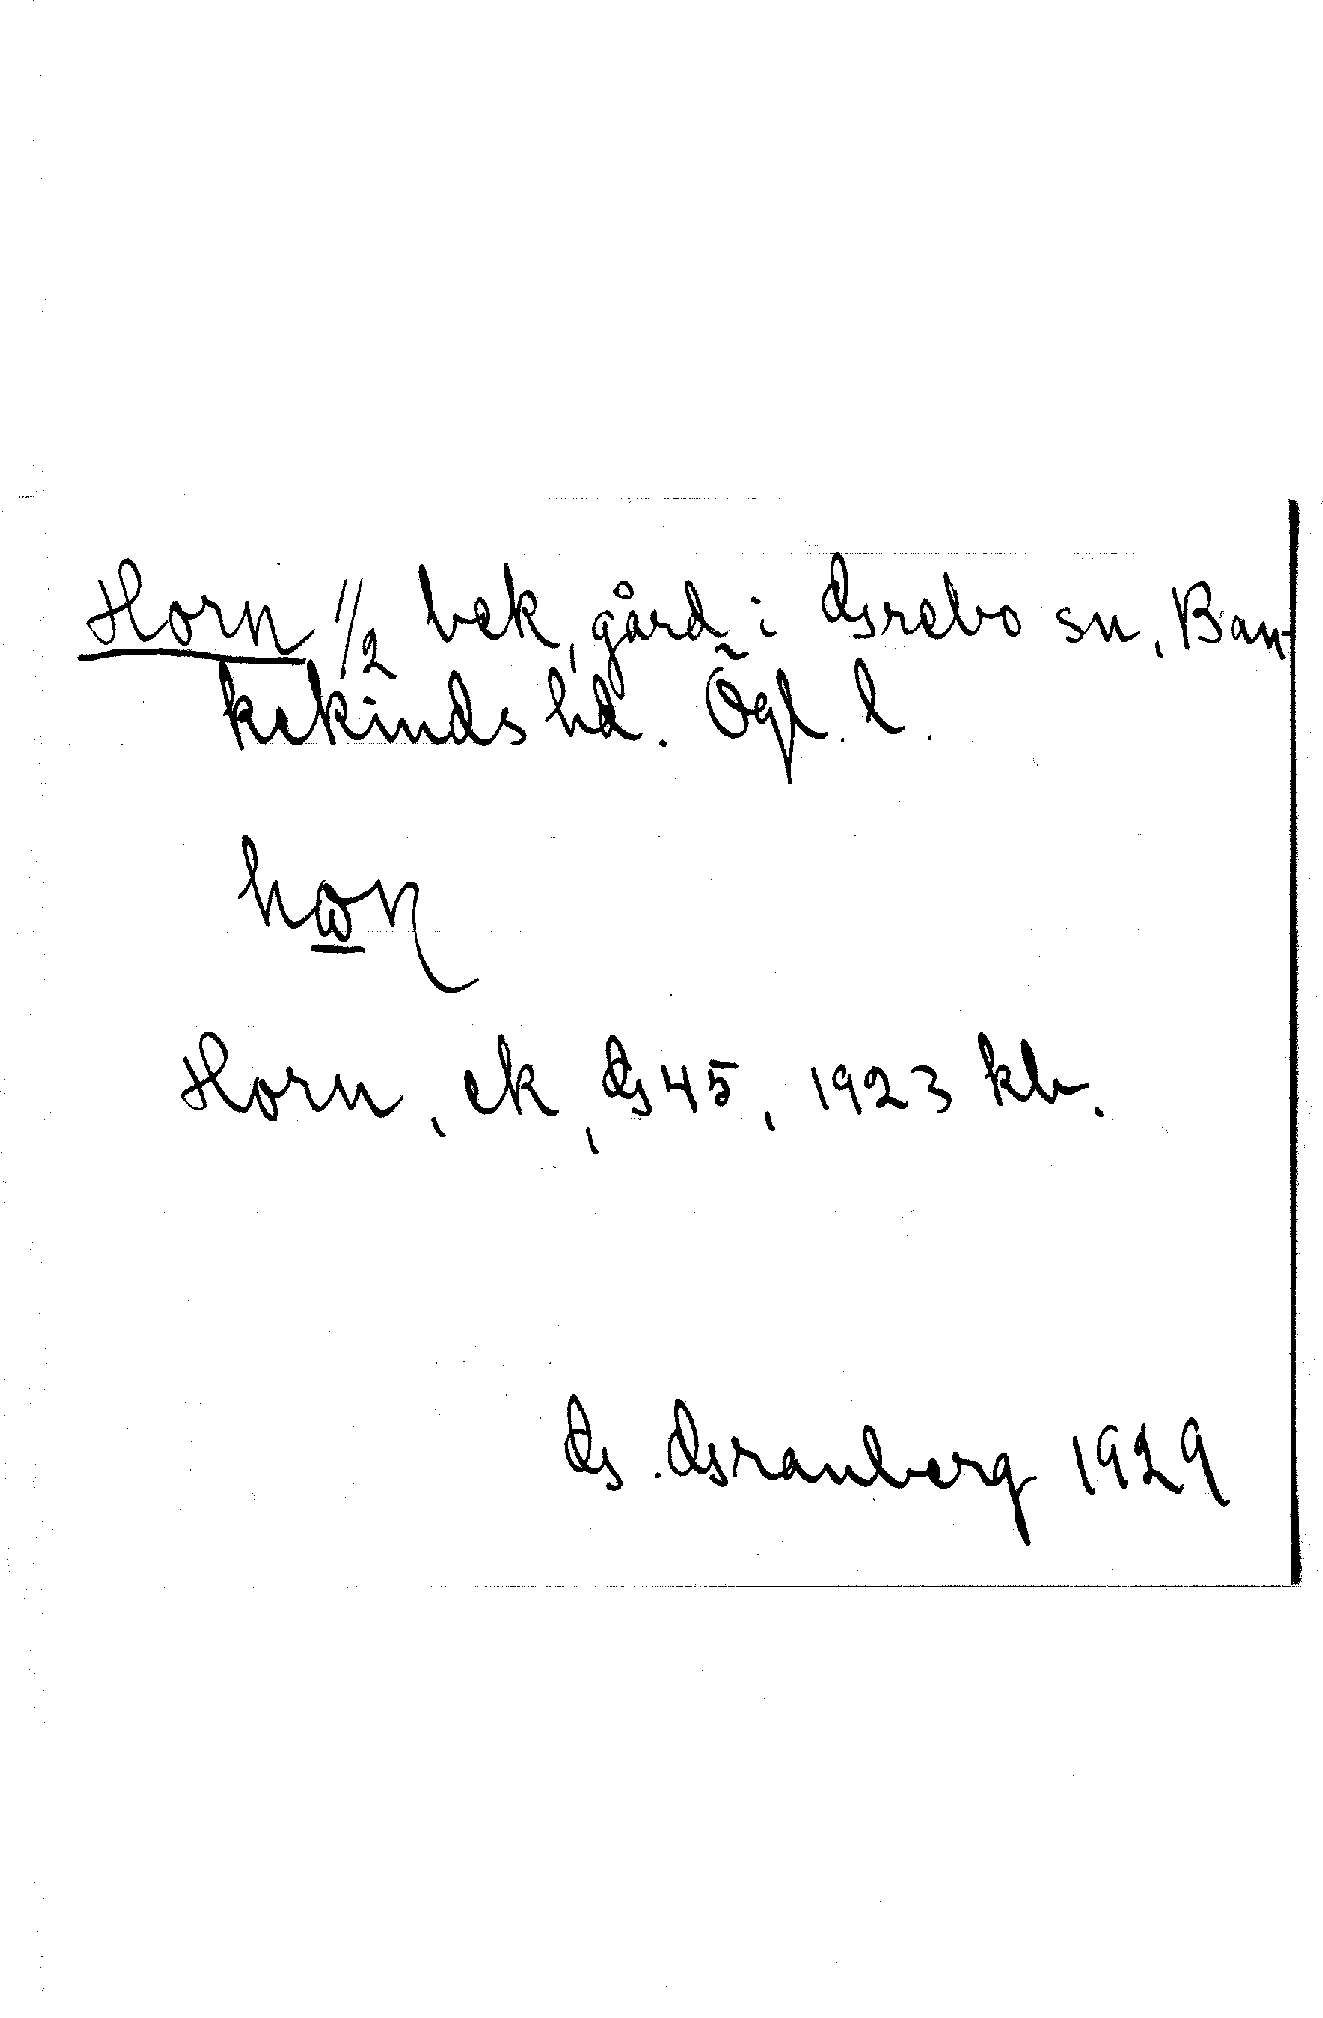 Horn 1/2 bek, gård i Grebo sn, Ban-
kekinds hd. Ögl. l.
hωɳ
Horn, ek, G 45, 1923 kb.
G. Granberg 1929